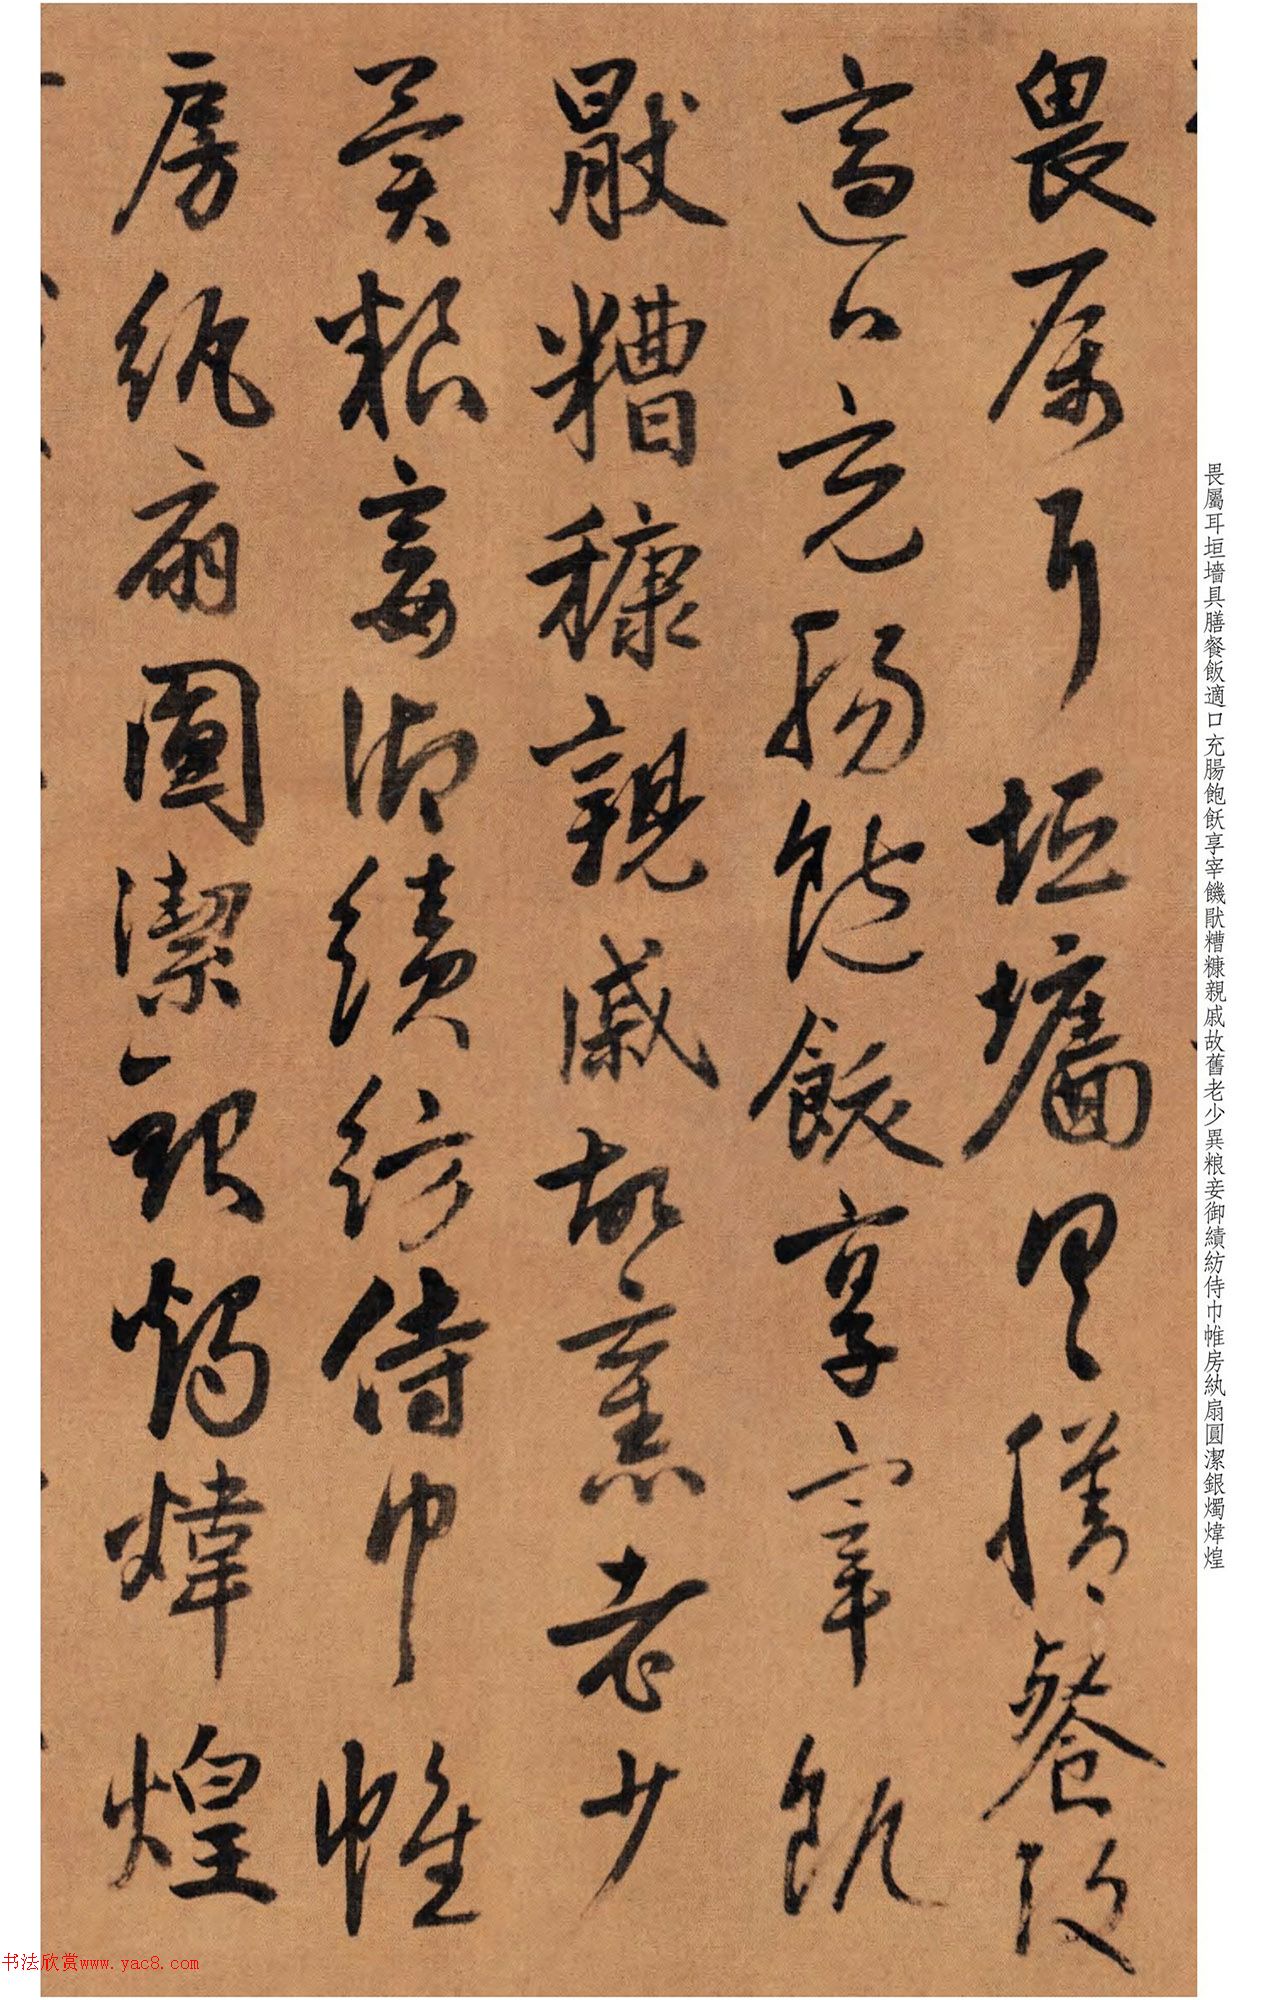 畏屬耳垣墻具膳餐飯
適口充腸飽飫享宰飢
猒糟糠親戚故舊老少
異粮妾御績紡侍巾帷
房紈扇圓潔銀燭煒煌
畏屬耳垣墻具膳餐飯適口充腸飽飫享宰饑猒糟糠親戚故舊老少異粮妾御績紡侍巾帷房紈扇圓潔銀燭煒煌
书法欣赏www.yac8.com